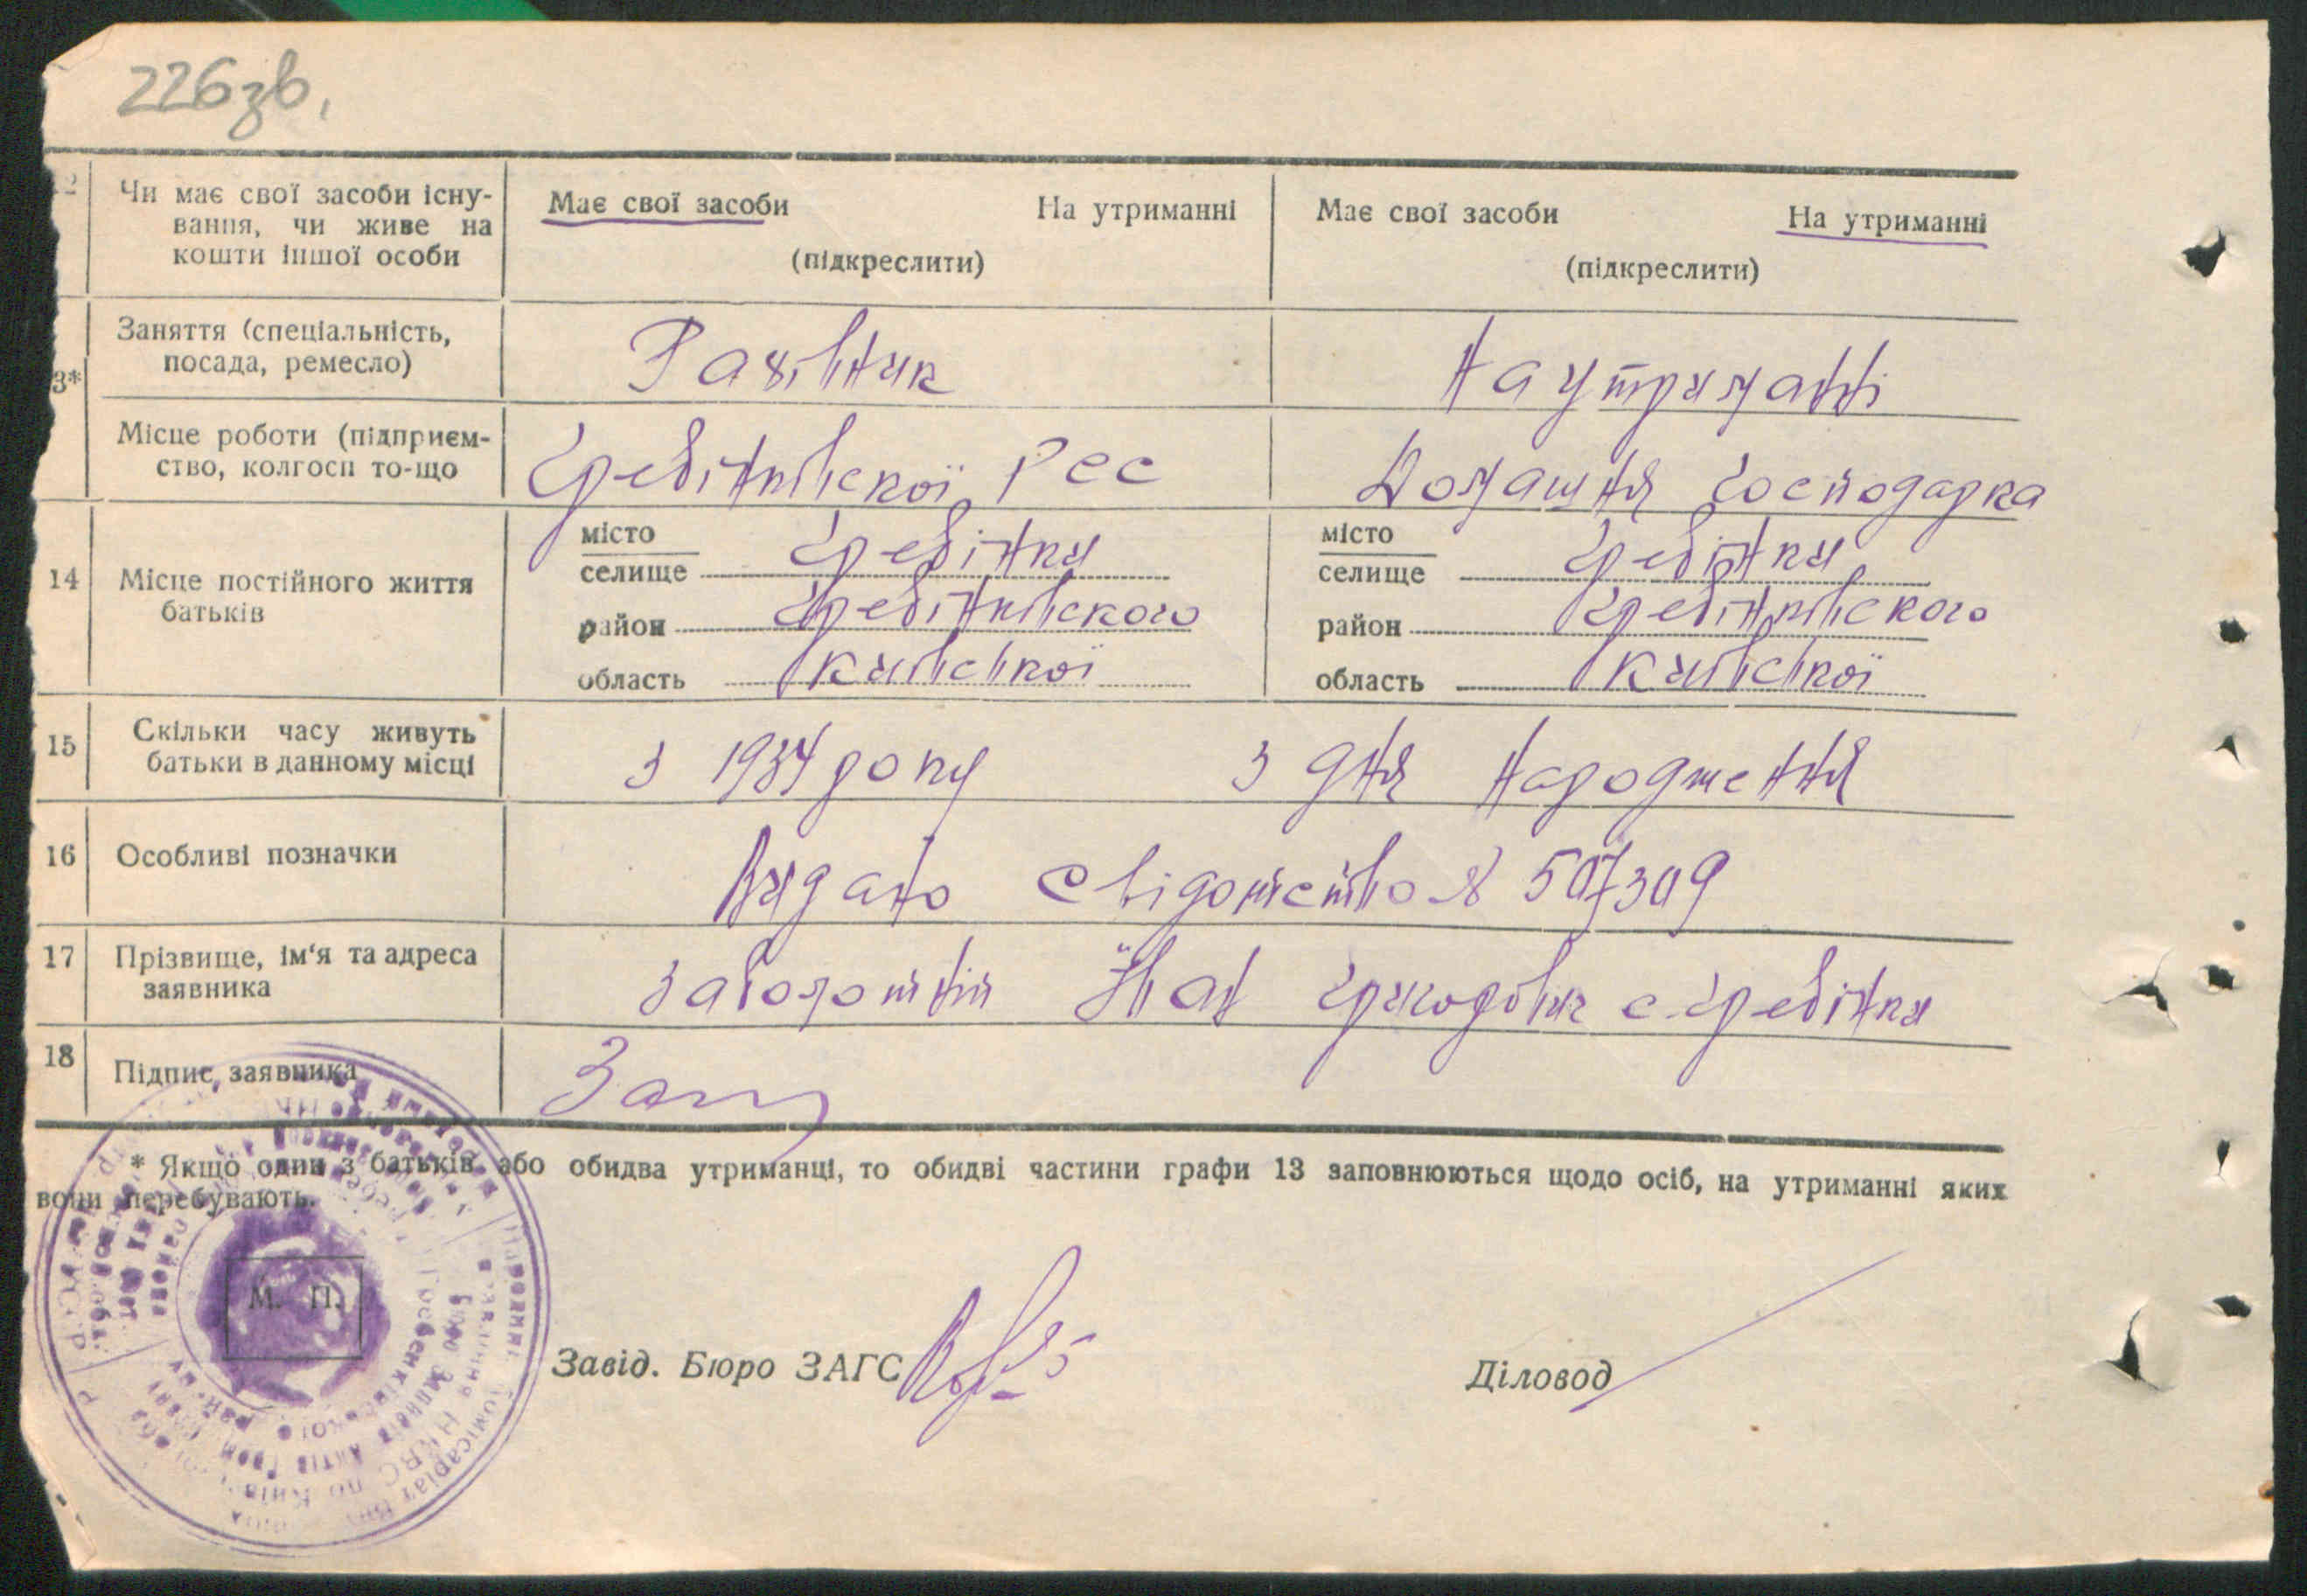 226зв.
Чи має свої засоби існу-
вання, чи живе на
кошти іншої особи
Має свої засоби На утриманні
(підкреслити)
Має свої засоби На утриманні
(підкреслити)
3*
Заняття (спеціальність,
посада, ремесло)
Рахівник
На утриманні
Місце роботи (підприєм-
ство, колгосп то-що
Гребінківскої РСС
Домашня господарка
14 Місце постійного життя
батьків
місто
селище Гребінки
район Гребінківского
область Київської
місто
селище Гребінки
район Гребінківского
область Київської
15 Скільки часу живуть
батьки в данному місці
з 1934 року з дня народження
16 Особливі позначки
Видано свідотство № 507309
17 Прізвище, ім'я та адреса
заявника
Заболотній Іван Григорович с. Гребінки
18 Підпис заявника
* Якщо один з батьків або обидва утриманці, то обидві частини графи 13 заповнюються щодо осіб, на утриманні яких
вони перебувають.
М. П.
Завід. Бюро ЗАГС
Діловод